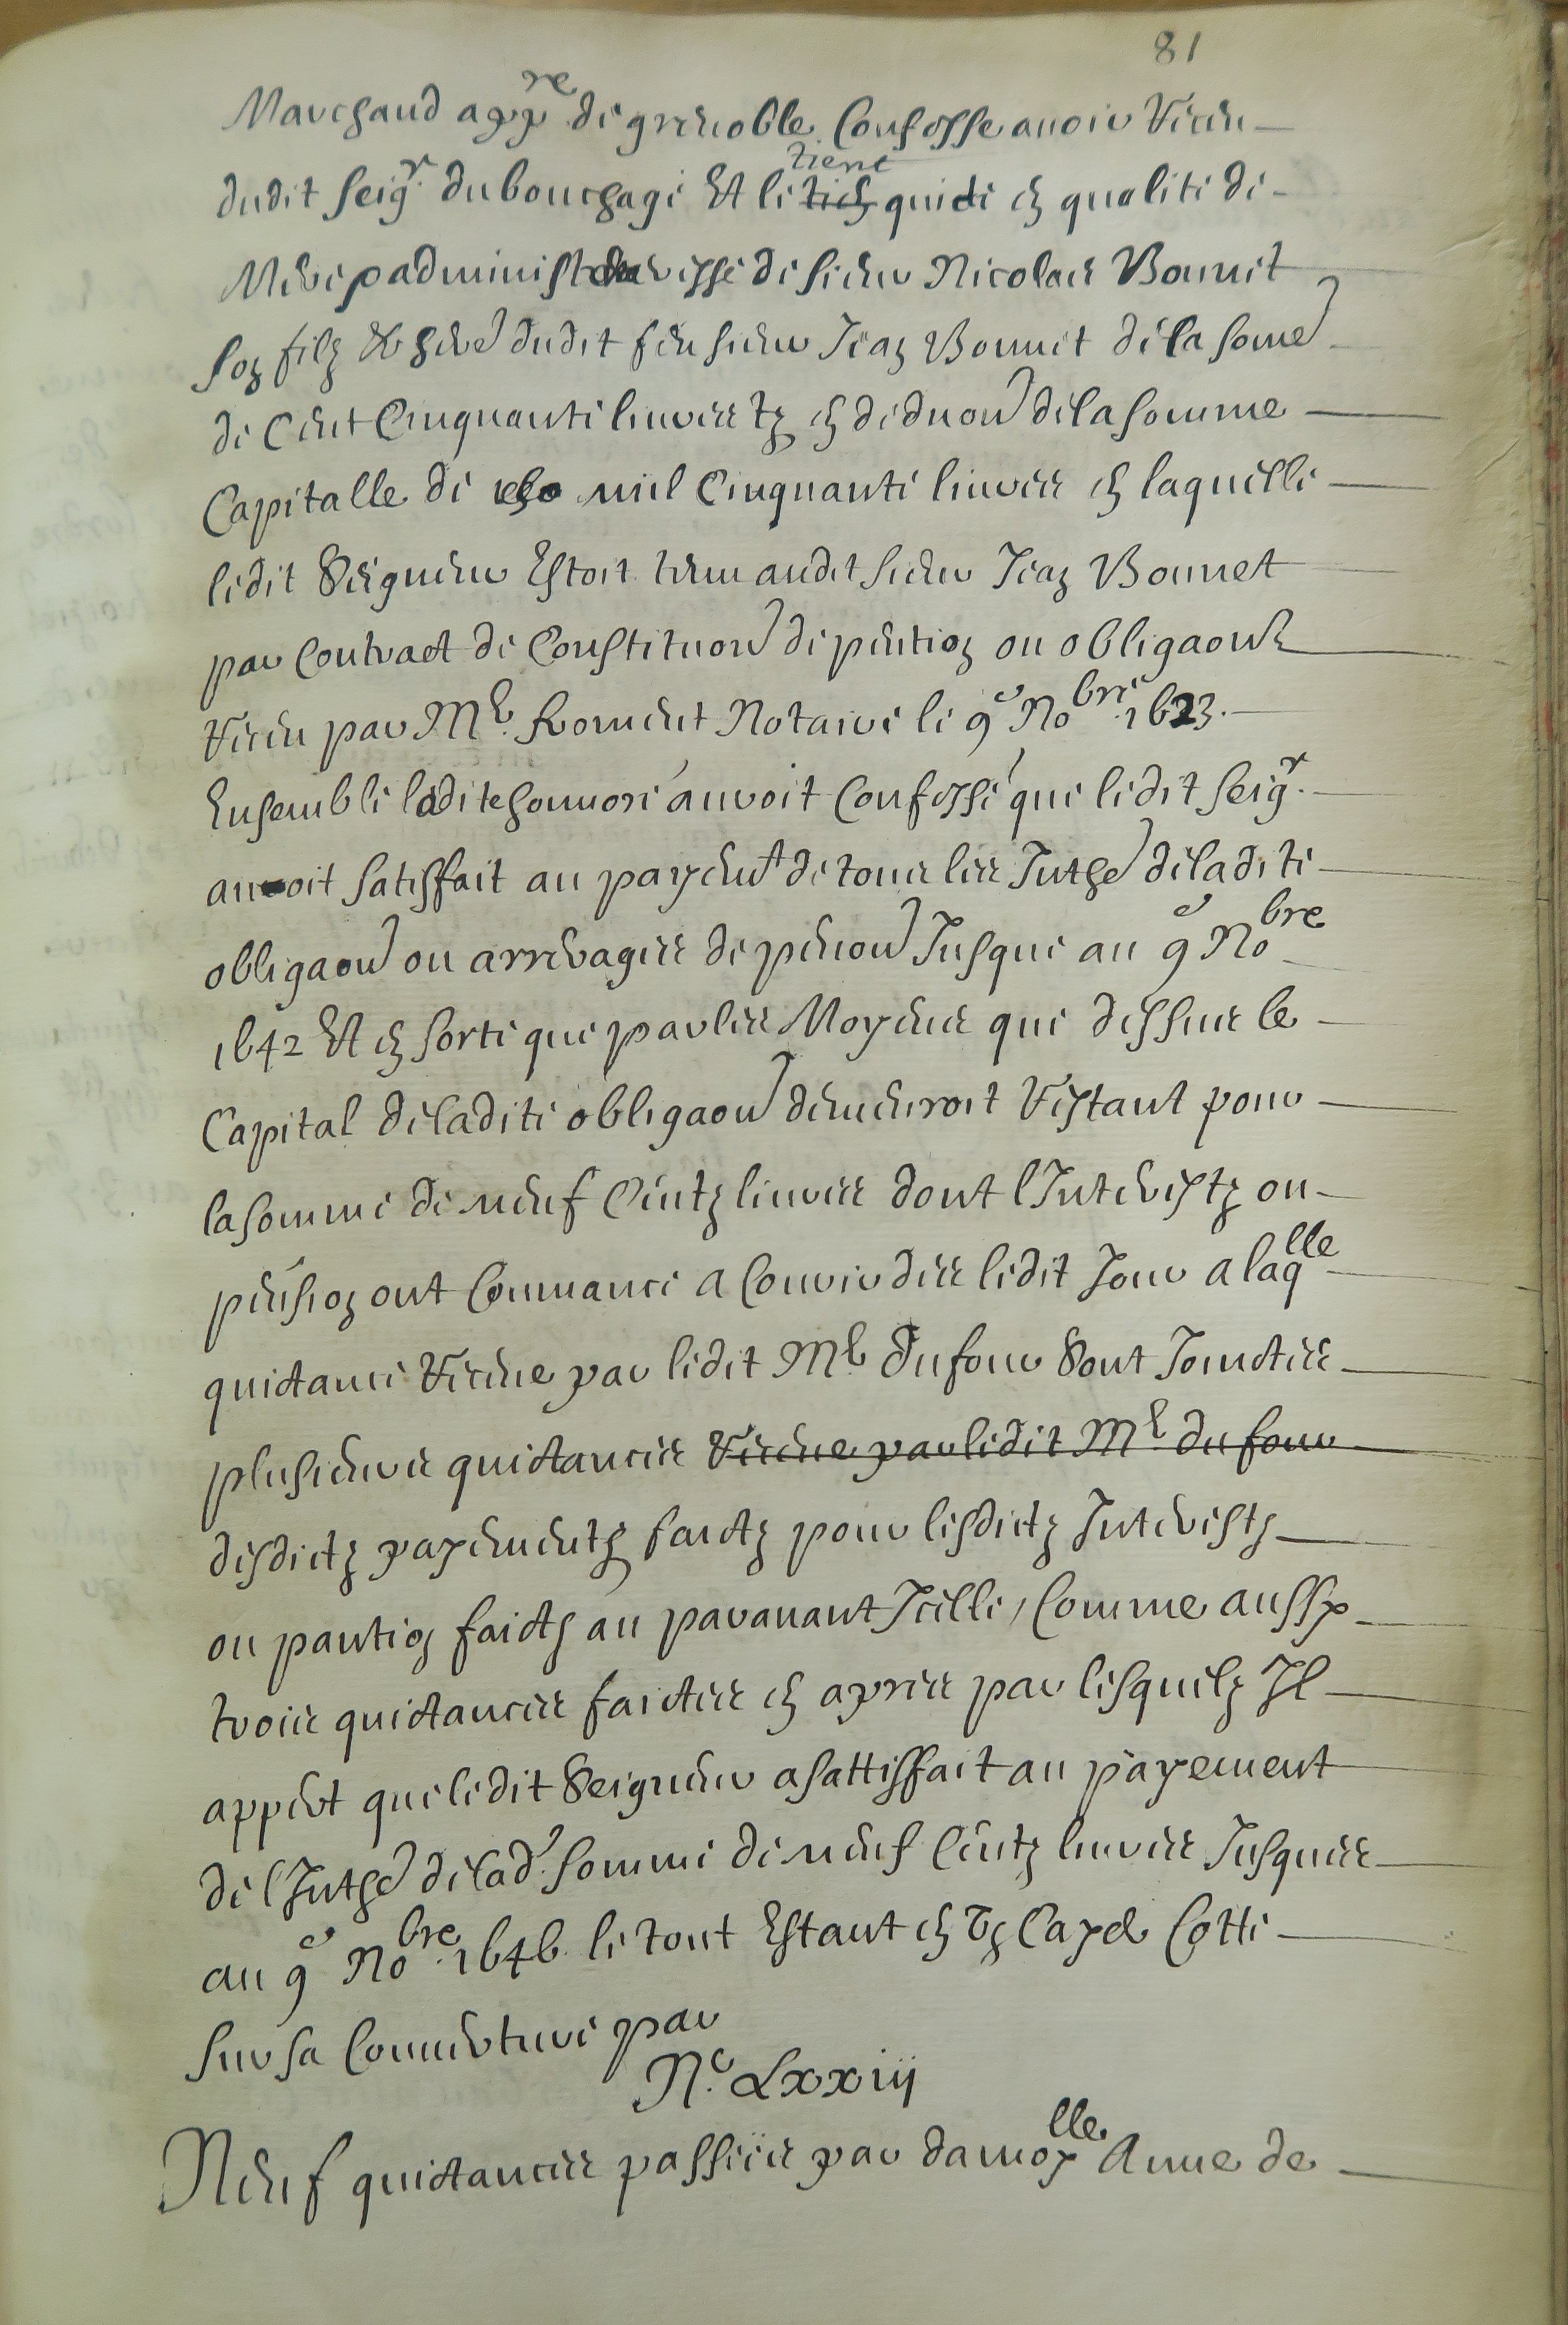 81
Marchand app.re de grenoble Confesse avoir Receu
dudit Seigr. du bouchage Et le tient quide en qualité de
Mere administraresse de sieur Nicolas Bonnet
son filz & here dudit feu sieur Jean Bonnet de la some
de Cent Cinquante livres tz en deduon de la somme
Capitalle de mil Cinquante livres en laquelle
ledit Seigneur Estoit tenu audit sieur Jean Bonnet
par Contract de Constituon de pention ou obligaon
Receu par Me. froment Notaire le 9e Nobre 1623.
Ensemble ladite avoit Confessé que ledit Seigr.
auoit satisfait au payemt de tous les Inthe de ladite
obligaon ou arrerages de penon Jusque au 9e Nobre
1642 Et en sorte que par les Moyens que dessus le
Capital de ladite obligaon demeuroit Restant pour
la somme de neuf Centz livres dont l'Interestz ou
pension ont Commancé a Courir des ledit Jour a laqlle
quictance Receue par ledit Me. Dufour Sont Joinctes
plusieurs quictances Receue par ledit Me. du four
desdictz payementz faictz pour lesdictz Interestz
ou pantion faicts au paravant Icelle, Comme aussy
trois quictances faictes en apres par lesquelz Il
appert que ledit Seigneur a sattisfait au payement
de l'Inthe de lade. somme de neuf Centz livres Jusques
au 9e Nobre. 1646 le tout Estant en un Cayer Cotté
sur sa Couverture par
No. Lxxiij
Neuf quictances passées par damoylle Anne de